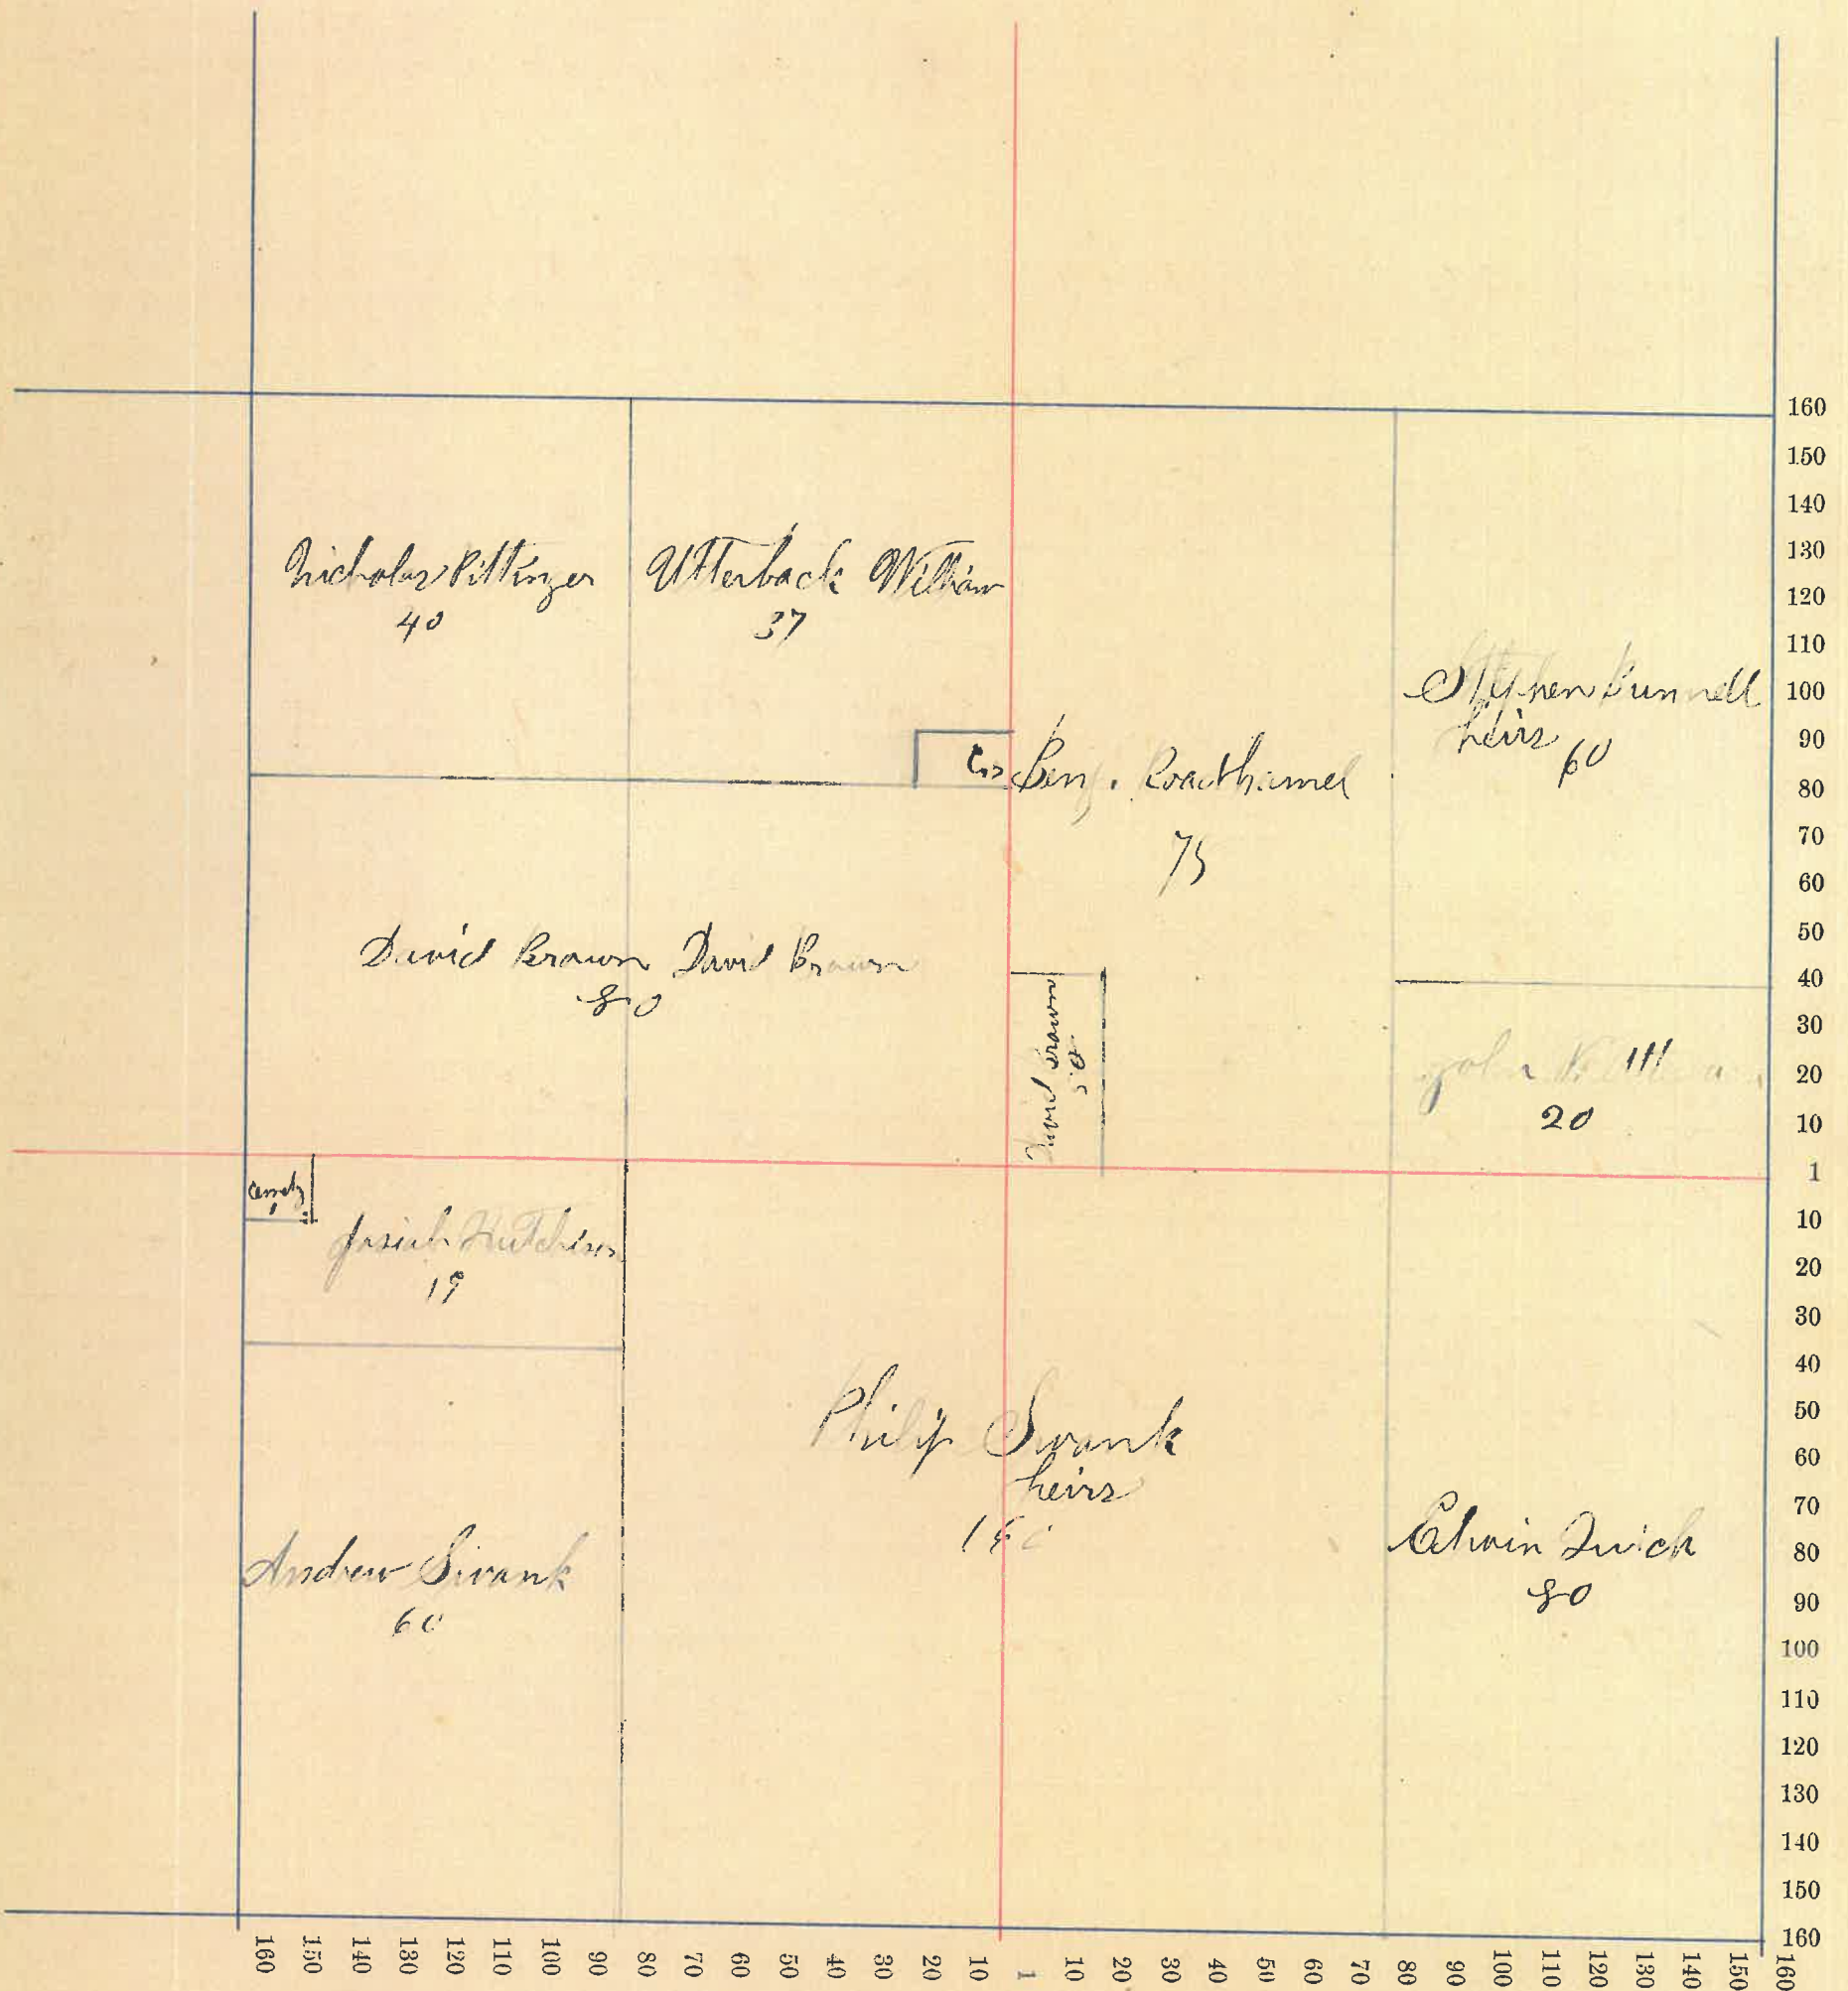 Nicholas Pittinger
40
Utterback William
37
Stephen Bunnell
heirs
60
Benj. Roadhamel
75
David Brown David Brown
80
David Brown
5
20
Josiah Hutchison
19
Philip Swank
heirs
Andrew Swank
60
Edwin Quick
80
160
150
140
130
120
110
100
90
80
70
60
50
40
30
20
10
1
10
20
30
40
50
60
70
80
90
100
110
120
130
140
150
160
160
150
140
130
120
110
100
90
80
70
60
50
40
30
20
10
1
10
20
30
40
50
60
70
80
90
100
110
120
130
140
150
160